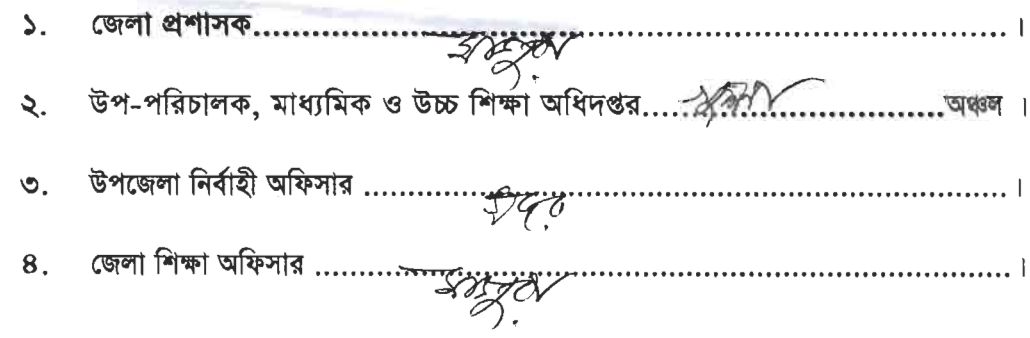 ১. জেলা প্রশাসক.......................................................................................।
২. উপ-পরিচালক, মাধ্যমিক ও উচ্চ শিক্ষা অধিদপ্তর....................................অঞ্চল ।
৩. উপজেলা নির্বাহী অফিসার ........................................................................।
সদর
৪. জেলা শিক্ষা অফিসার ..............................................................................।